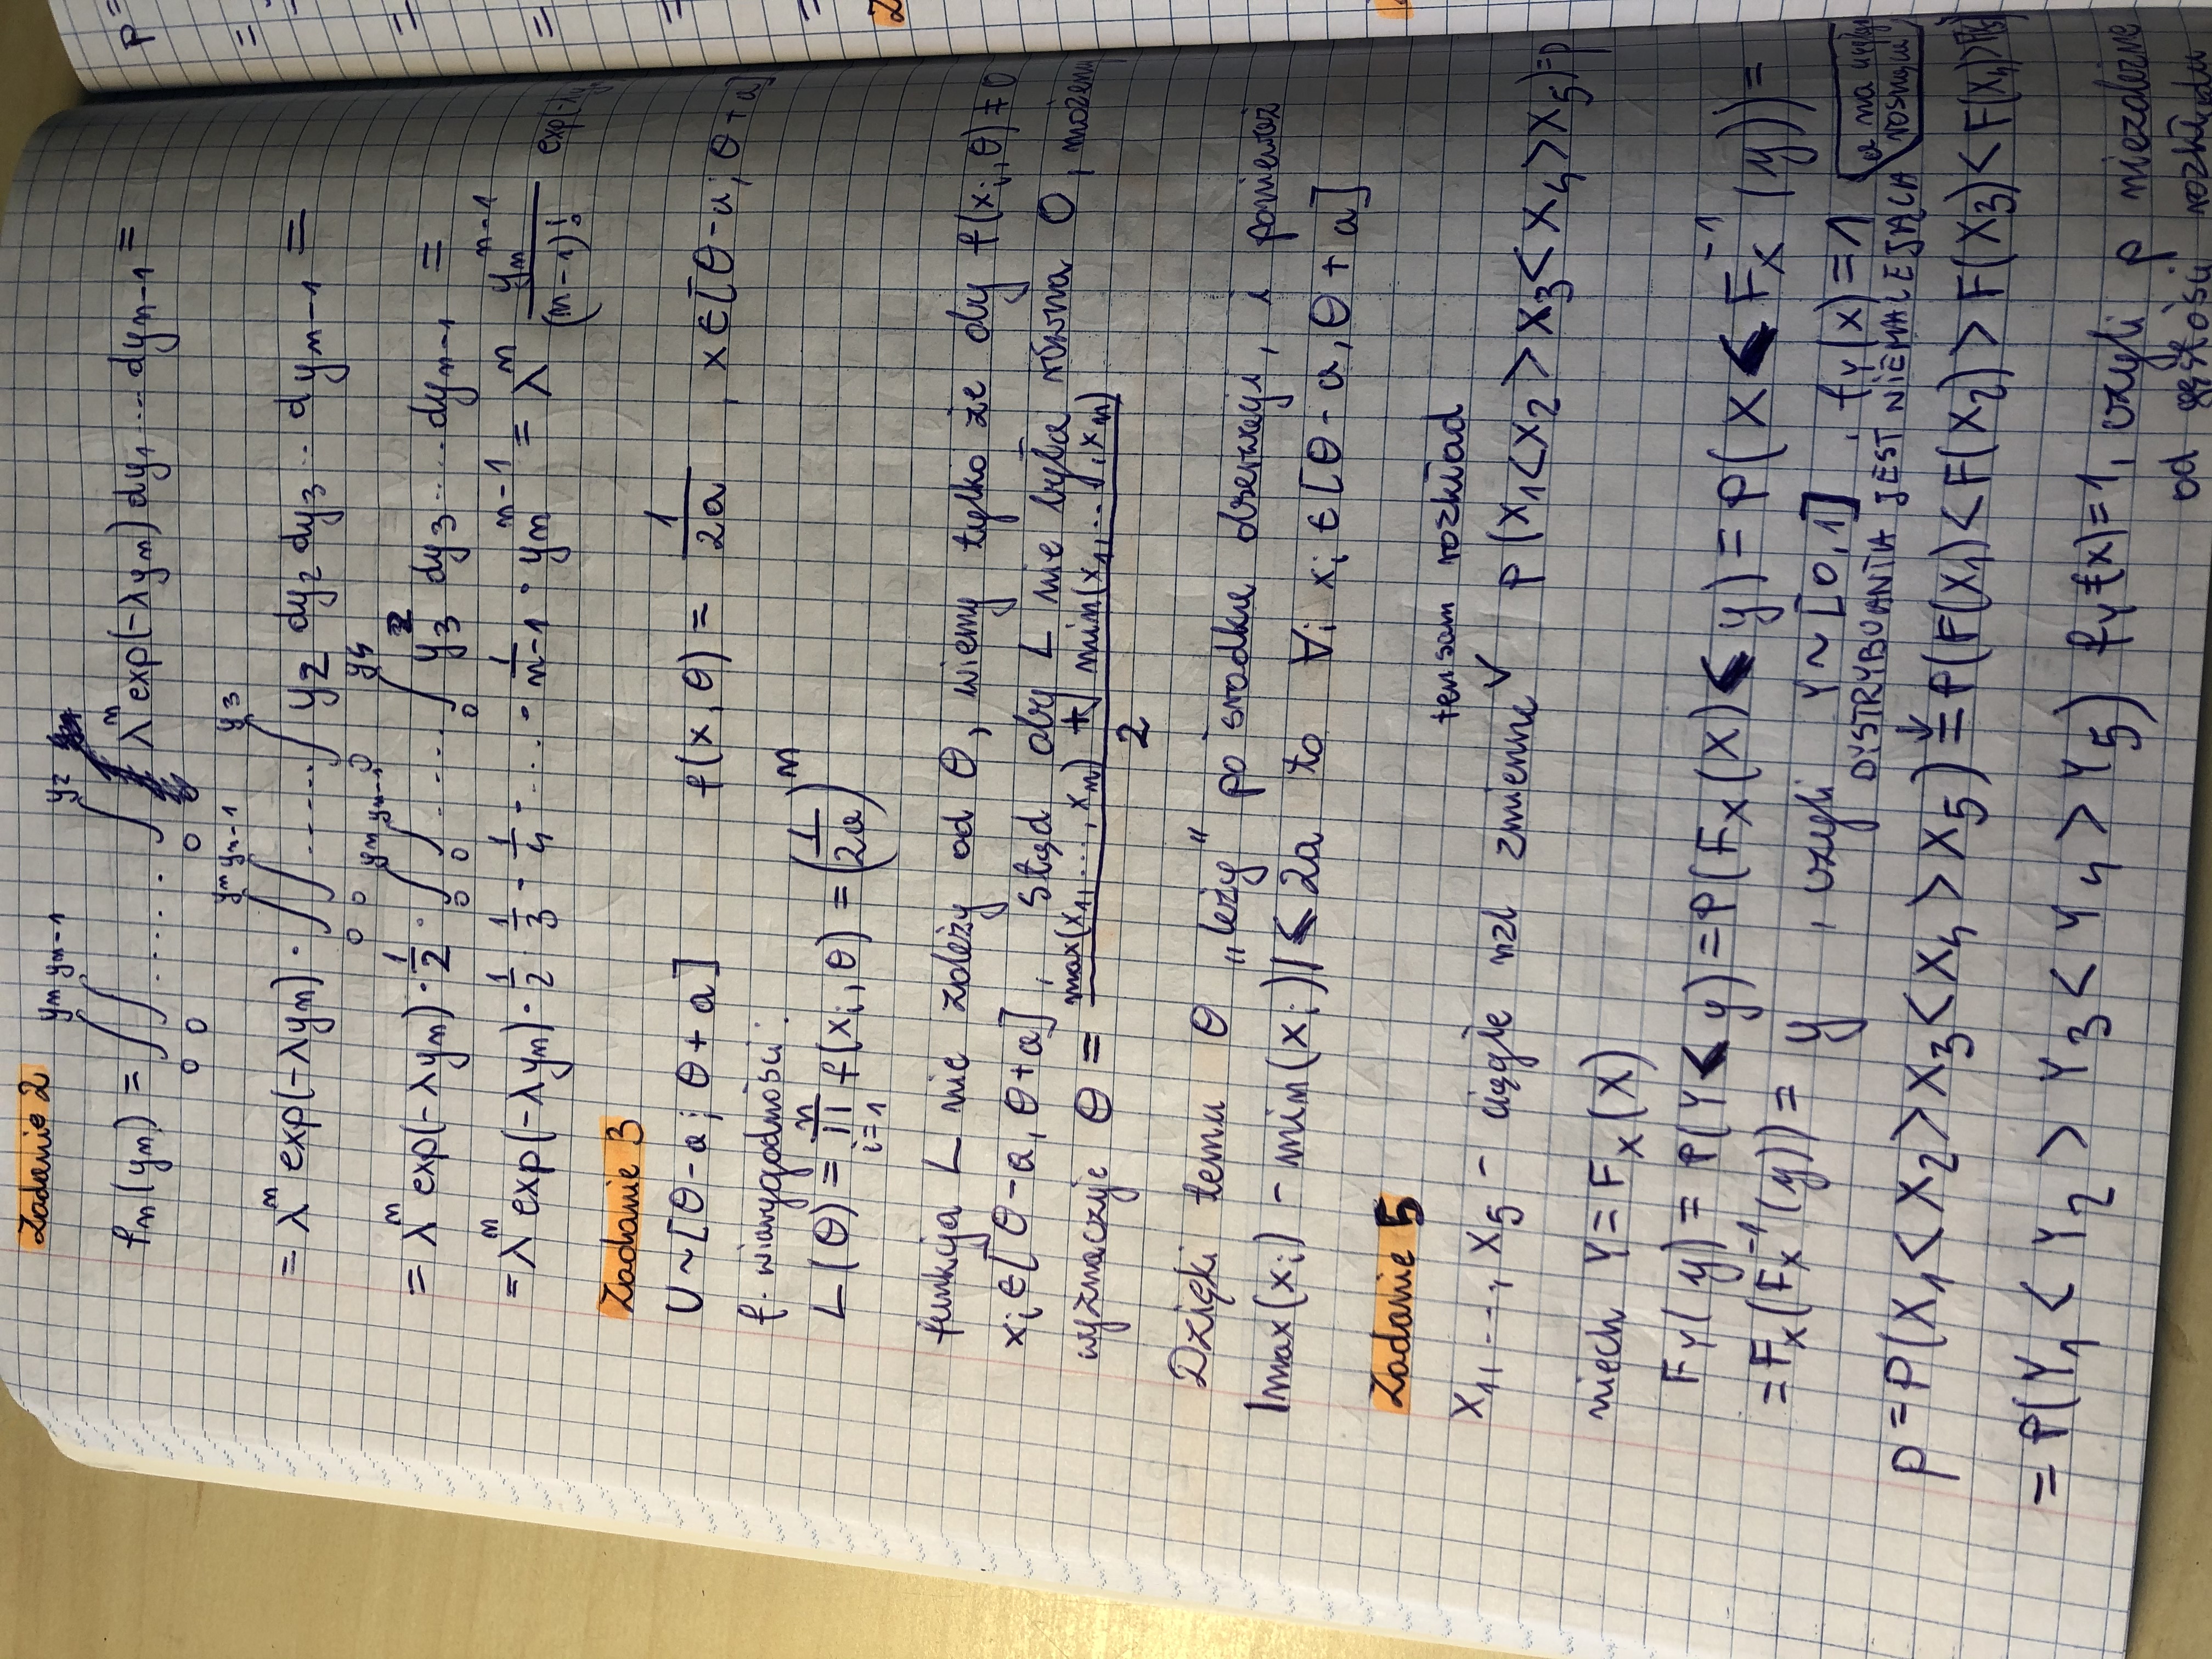 Zadanie 2
fₙ(yₙ) = ∫₀^{yₙ} ∫₀^{yₙ₋₁} ...... ∫₀^{y₂} λⁿ exp(-λyₙ) dy₁ .... dyₙ₋₁ =
= λⁿ exp(-λyₙ) · ∫₀^{yₙ} ∫₀^{yₙ₋₁} ...... ∫₀^{y₃} y₂ dy₂ dy₃ .. dyₙ₋₁ =
= λⁿ exp(-λyₙ) · 1/2 · ∫₀^{yₙ} ∫₀^{yₙ₋₁} ..... ∫₀^{y₄} y₃² dy₃ .... dyₙ₋₁ =
= λⁿ exp(-λyₙ) · 1/2 · 1/3 · 1/4 · .... · 1/(n-1) · yₙⁿ⁻¹ = λⁿ yₙⁿ⁻¹/(n-1)! exp(-λy
Zadanie 3
U ~ [θ-a; θ+a] f(x, θ) = 1/2a , x ∈ [θ-a; θ+a]
f. wiarygodności:
L(θ) = ∏ᵢ₌₁ⁿ f(xᵢ, θ) = (1/2a)ⁿ
funkcja L nie zależy od θ, wiemy tylko że aby f(xᵢ, θ) ≠ 0
xᵢ ∈ [θ-a, θ+a], stąd aby L nie była równa 0, możemy
wyznaczyć θ = (max(x₁, ..., xₙ) + min(x₁, ..., xₙ))/2
Dzięki temu θ „leży" po środku obserwacji, i ponieważ
|max(xᵢ) - min(xᵢ)| ≤ 2a to ∀i xᵢ ∈ [θ-a, θ+a]
Zadanie 5
ten sam rozkład
X₁, ..., X₅ - ciągłe nzl zmienne ∨ P(X₁<X₂>X₃<X₄>X₅)=p
niech Y = F_X(X)
F_Y(y) = P(Y < y) = P(F_X(X) < y) = P(X < F_X⁻¹(y)) =
= F_X(F_X⁻¹(y)) = y , czyli Y ~ [0,1] , f_Y(x) = 1
DYSTRYBUANTA JEST NIEMALEJĄCA
p = P(X₁ < X₂ > X₃ < X₄ > X₅) = P(F(X₁) < F(X₂) > F(X₃) < F(X₄) > F(X₅)
= P(Y₁ < Y₂ > Y₃ < Y₄ > Y₅) f_Y(x) = 1, czyli p niezależne
od gęstości rozkładu